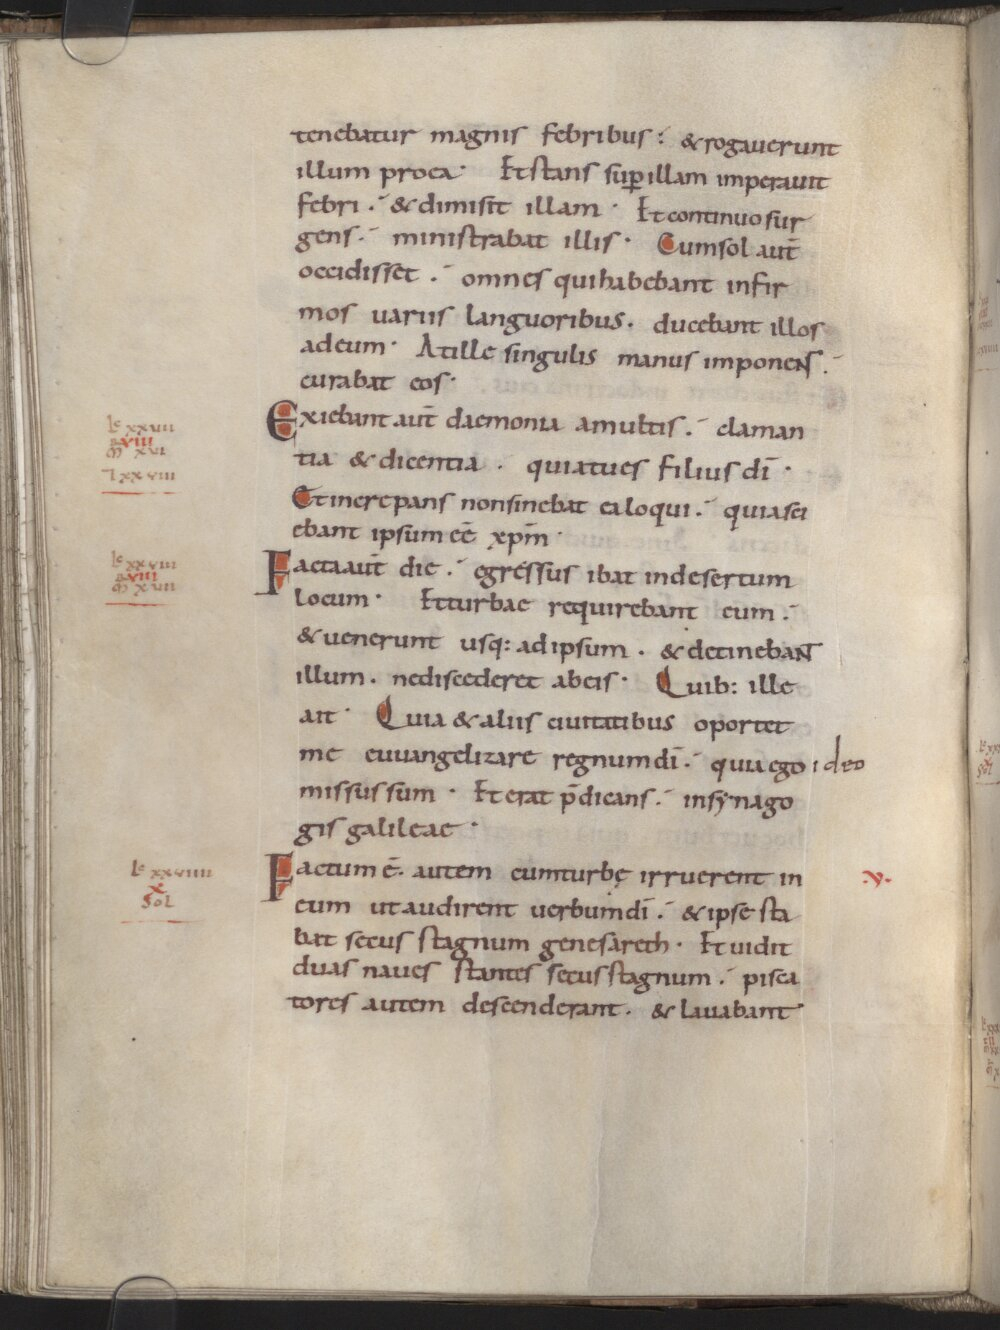 tenebatur magnis febribus: & rogauerunt
illum pro ea· Et stans sup̄ illam imperauit
febri·́ & dimisit illam· Et continuo sur
gens·́ ministrabat illis· Cum sol aut̄
occidisset·́ omnes qui habebant infir
mos uariis languoribus· ducebant illos
ad eum· At ille singulis manus imponens·́
curabat eos·
Exiebant aut̄ daemonia a multis·́ claman
tia & dicentia· quia tu es filius dī·
Et increpans non sinebat ea loqui·́ quia sci
ebant ipsum eē xp̄m·
Facta aut̄ die·́ egressus ibat in desertum
locum· Et turbae requirebant eum·́
& uenerunt usq: ad ipsum· & detinebant
illum· ne discederet ab eis· Quib: ille
ait· Quia & aliis ciuitatibus oportet
me euuangelizare regnum dī·́ quia ego ideo
missus sum· Et erat p̄dicans·́ in synago
gis galileae·
Factum ē· autem cum turbę irruerent in
eum ut audirent uerbum dī·́ & ipse sta
bat secus stagnum genesareth· Et uidit
duas naues stantes secus stagnum·́ pisca
tores autem descenderant· & lauabant
lc xxvii
viii
m xvi
l xxviii
lc xxviii
viii
m xvii
lc xxviiii
x
sol
·v·